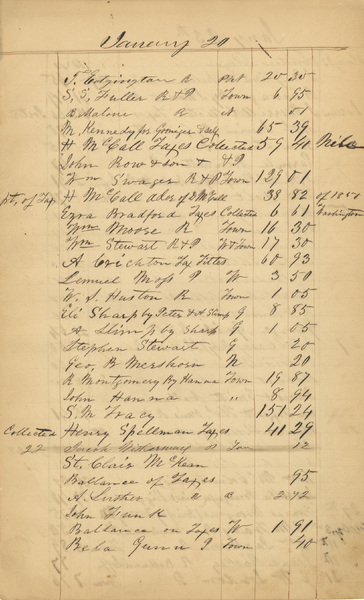 January 20
T. Edgington R Prt 20 35
S. S. Fuller R & P Town 6 95
B Malone R N 51
M. Kennedy for Gromiger & self 65 39
H McCall Taxes Collected 59 41 Niles
John Row & son & &P
Wm Swager R & P Town 129 01
pt, of Tax, H McCall adr of D McCall 38 82 of 1850
Ezra Bradford Taxes Collected 6 61 Washington
Wm Moore R Town 16 30
Wm Stewart R & P W & Town 17 30
A Crichton Tax Titles 60 93
Lemuel Moss P W 3 50
W. S. Huston R Town 1 05
Eli Sharp by Peter & A Slimp G 8 85
A Slimp by Sharp G 1 05
Stephen Stewart G 20
Geo, B Mershorn N 20
R Montgomery By Hanna Town 19 87
John Hanna " 8 94
S. M Tracy 151 24
Collected Henry Spellman Taxes 41 29
22 Town 12
St. Clair McKean
Ballance of Taxes 95
A. Lusher 2 72
John Funk
Ballance on Taxes W 1 91
Bela Gunn P Town 40